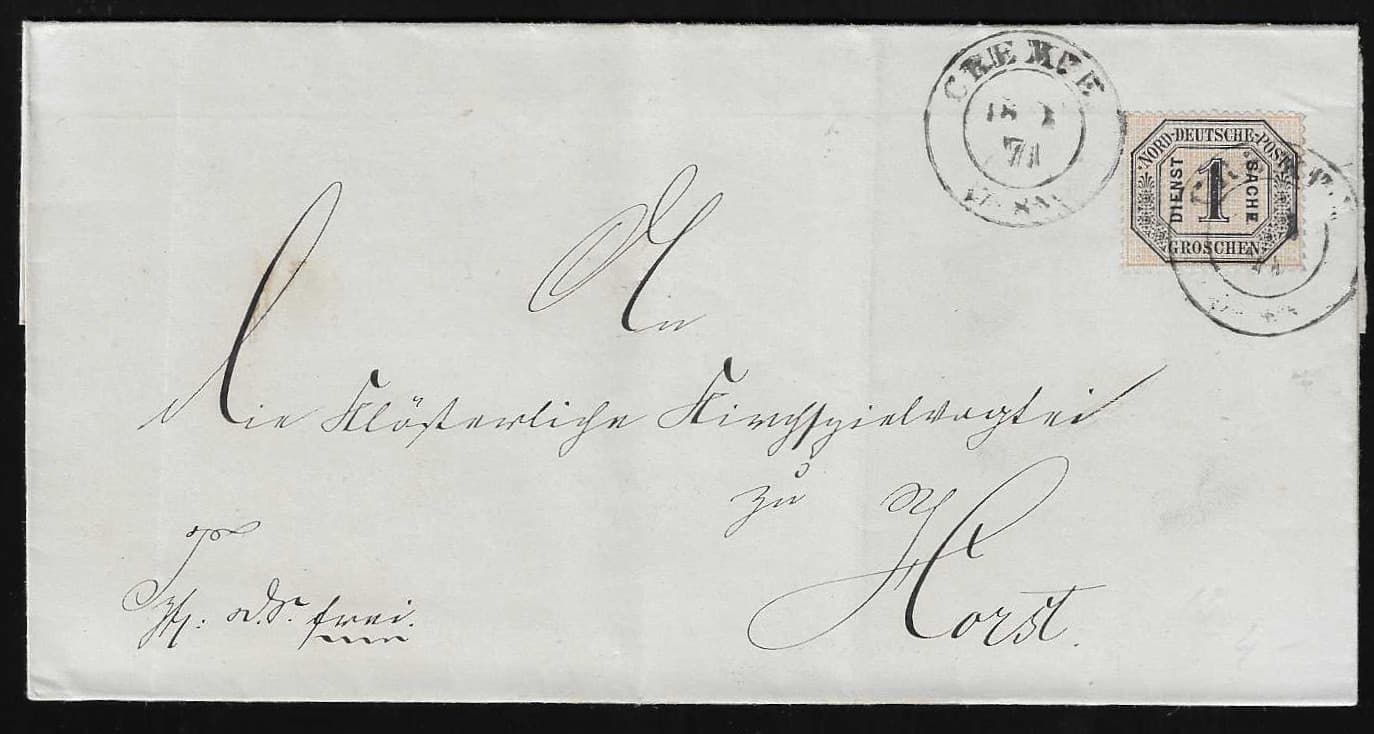 CREMPE
18 1
71
NORD-DEUTSCHE-POST
DIENST 1 SACHE
GROSCHEN
An
die Klösterliche Kirchspielvogtei
zu
Horst.
frei.